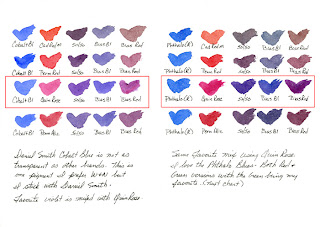 Cobalt Bl Cad Red Lt 50/50 Bias Bl Bias Red
Cobalt Bl Perm Rose 50/50 Bias Bl Bias Red
Cobalt Bl Quin Rose 50/50 Bias Bl Bias Red
Cobalt Bl Perm Aliz. 50/50 Bias Bl Bias Red
Daniel Smith Cobalt Blue is not as
transparent as other brands. This is
one pigment I prefer W&N but
I stick with Daniel Smith.
Favorite violet is mixed with Quin Rose
Phthalo (R) 50/50 Bias Bl Bias Red
Phthalo (R) 50/50 Bias Bl Bias Red
Phthalo (R) Quin Rose 50/50 Bias Bl Bias Red
Phthalo (R) Perm Aliz. 50/50 Bias Bl Bias Red
Same favorite mix using Quin Rose.
I love the Phthalo Blues. Both Red &
Green versions with the Green being my
favorite. (next chart)